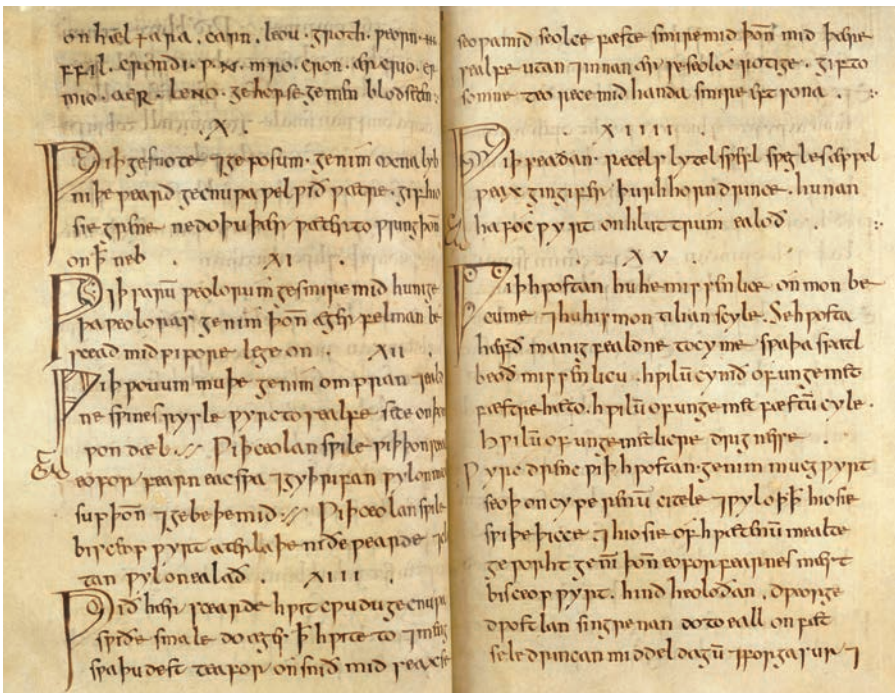 onhæl þara . carn . leou . groth . ƿeorn .
ffil . crondi . p . N . mro . cron . ærcrio . er
mio . aeR . leNo . ge horse ge men blodseten
. X .
Ƿiþ gesnote ⁊ geposum . genim oxnalyb
niþeƿeard gecnuƿa ƿel ƿið ƿætre . gif hio
sie grene ne do þu þær ƿæter to ƿring þoñ
on ꝥ neb . XI .
Ƿiþ sarū ƿeolorum gesmire mid hunige
þa ƿeoloras genim þoñ æger felman be
scead mid pipore lege on . XII
Ƿiþ ƿouum muþe genim ompran ⁊ eald
ne sƿines rysle ƿyrc to sealfe sete on þon
ƿon dæl .// Ƿiþ ceolan sƿile ƿiþ þon
eoforfearn eac sƿa ⁊ gyþrifan ƿyl on
sup þoñ ⁊ gebeþe mid .// Ƿiþ ceolan sƿile
bisceop ƿyrt atterlaþe nideƿearde ⁊ clæ
tan ƿyl on ealað . XIII
Ƿid hær scearde hƿit cƿudu gecnuƿa
sƿiðe smale do æges ꝥ hƿite to ⁊ meng
sƿa þu dest teafor onsnid mid seaxse
seoƿa mid seolce fæste smire mid þoñ mid þære
sealfe utan ⁊ innan ær se seoloc rotige . gif to
somne teo rece mid handa smire eft sona .
XIIII
Ƿiþ seadan . recels lytel sƿefl sƿegles æppel
ƿeax gingifer þurh horn drince . hunan
hafoc ƿyrt on hluttrum ealoð
XV
Ƿiþ hƿostan hu he missenlice on mon be
cume ⁊ hu his mon tilian scyle . Se hƿosta
hæfð manigfealdne tocyme sƿa þa spatl
beoð missenlicu . hƿilū cymð of ungemet
fæstre hæto . hƿilū of ungemet fæstū cyle .
hƿilū of ungemetlicre drignesse .
Ƿyrc drenc ƿiþ hƿostan . genim mucgƿyrt
seoþ on cyperenū citele ⁊ ƿyl oþ ꝥ hio sie
sƿiþe þicce ⁊ hio sie of hƿætenū mealte
geƿorht geni͞m þoñ eoforfearnes mæst
bisceop ƿyrt . hind heoloðan . dƿeorge
dƿostlan singrenan do to eall on fæt
sele drincan middeldagū ⁊ forga sur ⁊